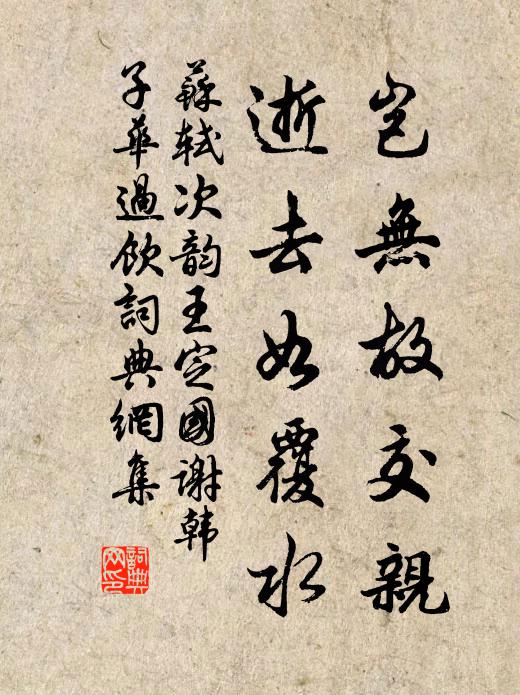 豈無故交親
逝去如覆水
蘇軾次韵王定國謝韩
子華過飲詞典網集
詞典網印